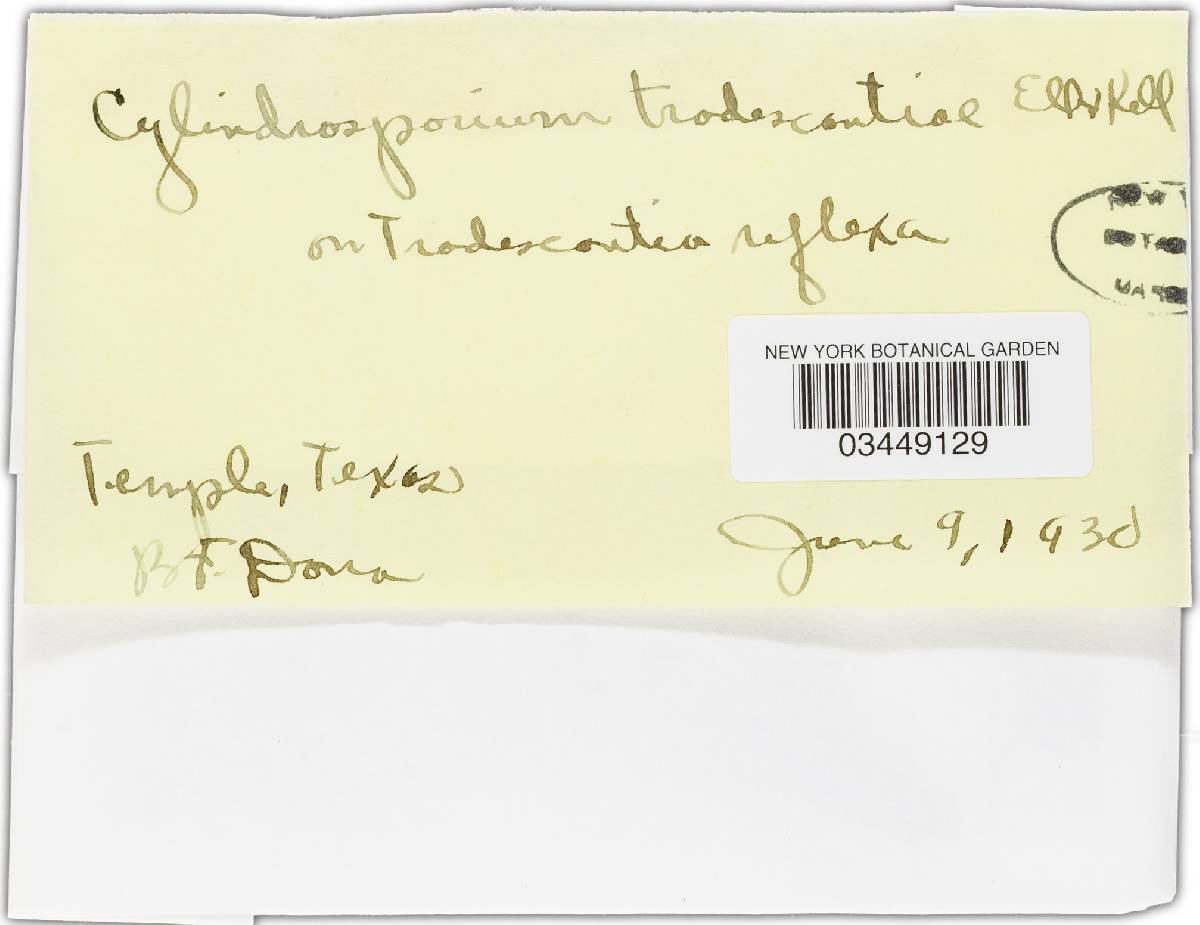 Cylindrosporium tradescantiae Ell & Kell
on Tradescantia reflexa
NEW Y
BOTA
NEW YORK BOTANICAL GARDEN
03449129
Temple, Texas
June 9, 1930
B.F. Dana